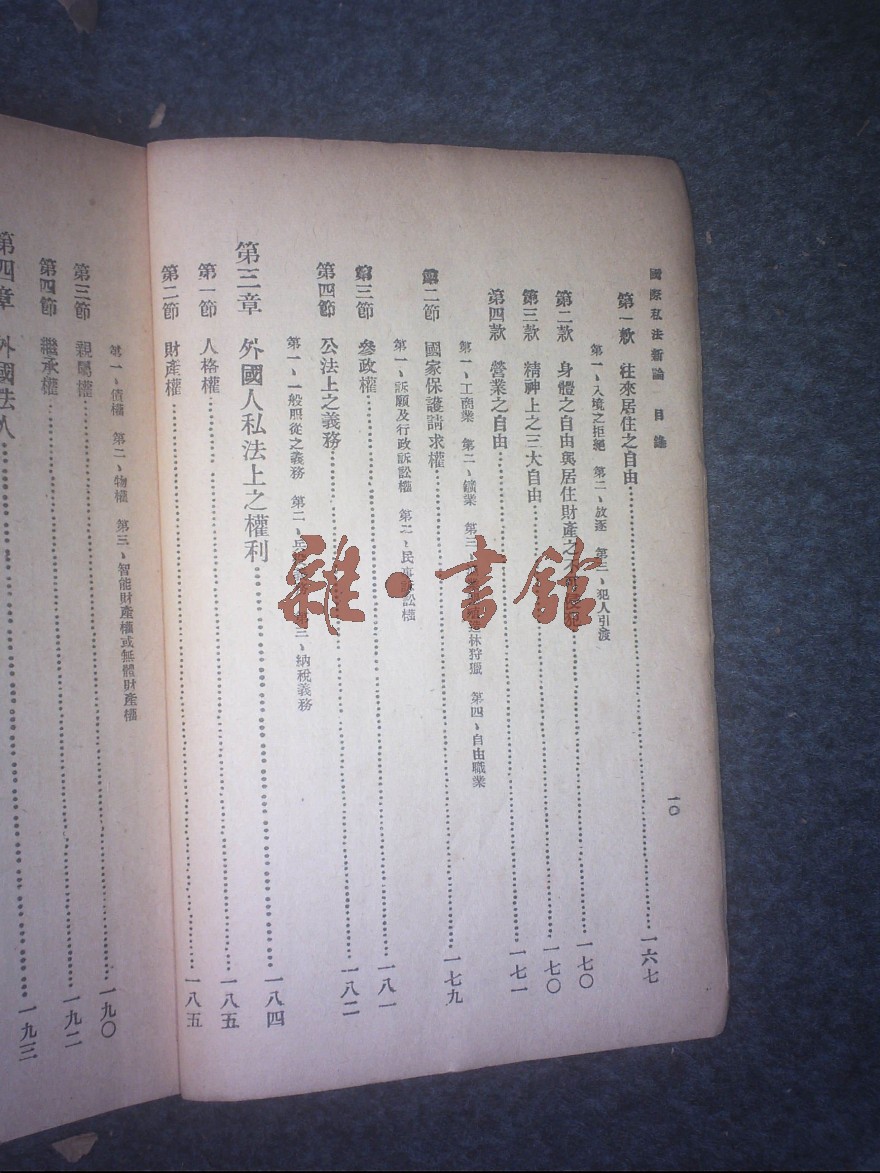 國際私法新論 目錄 一〇
第一款 往來居住之自由 一六七
第一、入境之拒絕 第二、放逐 第三、犯人引渡
第二款 身體之自由與居住財產之不可侵犯 一七〇
第三款 精神上之三大自由 一七〇
第四款 營業之自由 一七一
第一、工商業 第二、鑛業 第三、林狩獵 第四、自由職業
第二節 國家保護請求權 一七九
第一、訴願及行政訴訟權 第二、民事訴訟權
第三節 參政權 一八一
第四節 公法上之義務 一八二
第一、一般照從之義務 第二、兵 第三、納稅義務
第三章 外國人私法上之權利 一八四
第一節 人格權 一八五
第二節 財產權 一八五
第一、債權 第二、物權 第三、智能財產權或無體財產權
第三節 親屬權 一九〇
第四節 繼承權 一九二
第四章 外國法人 一九三
雜·書館